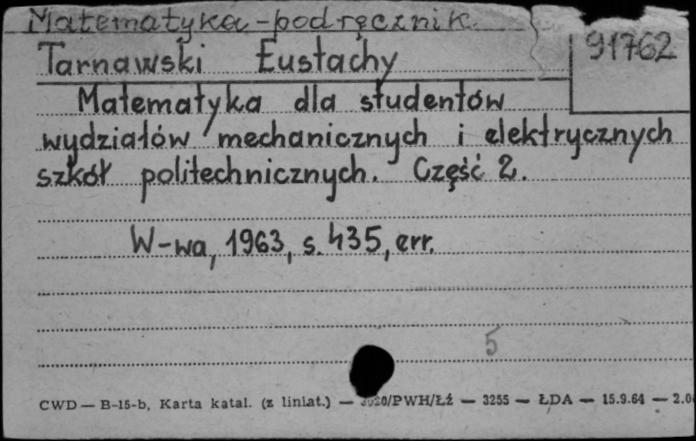 Matematyka - podręcznik.
91762
Tarnawski Eustachy
Matematyka dla studentów
wydziałów mechanicznych i elektrycznych
szkół politechnicznych. Część 2.
W-wa, 1963, s. 435, err.
5
CWD — B-15-b, Karta katal. (z liniat.) — /PWH/Łź — 3255 — ŁDA — 15.9.64 — 2.0